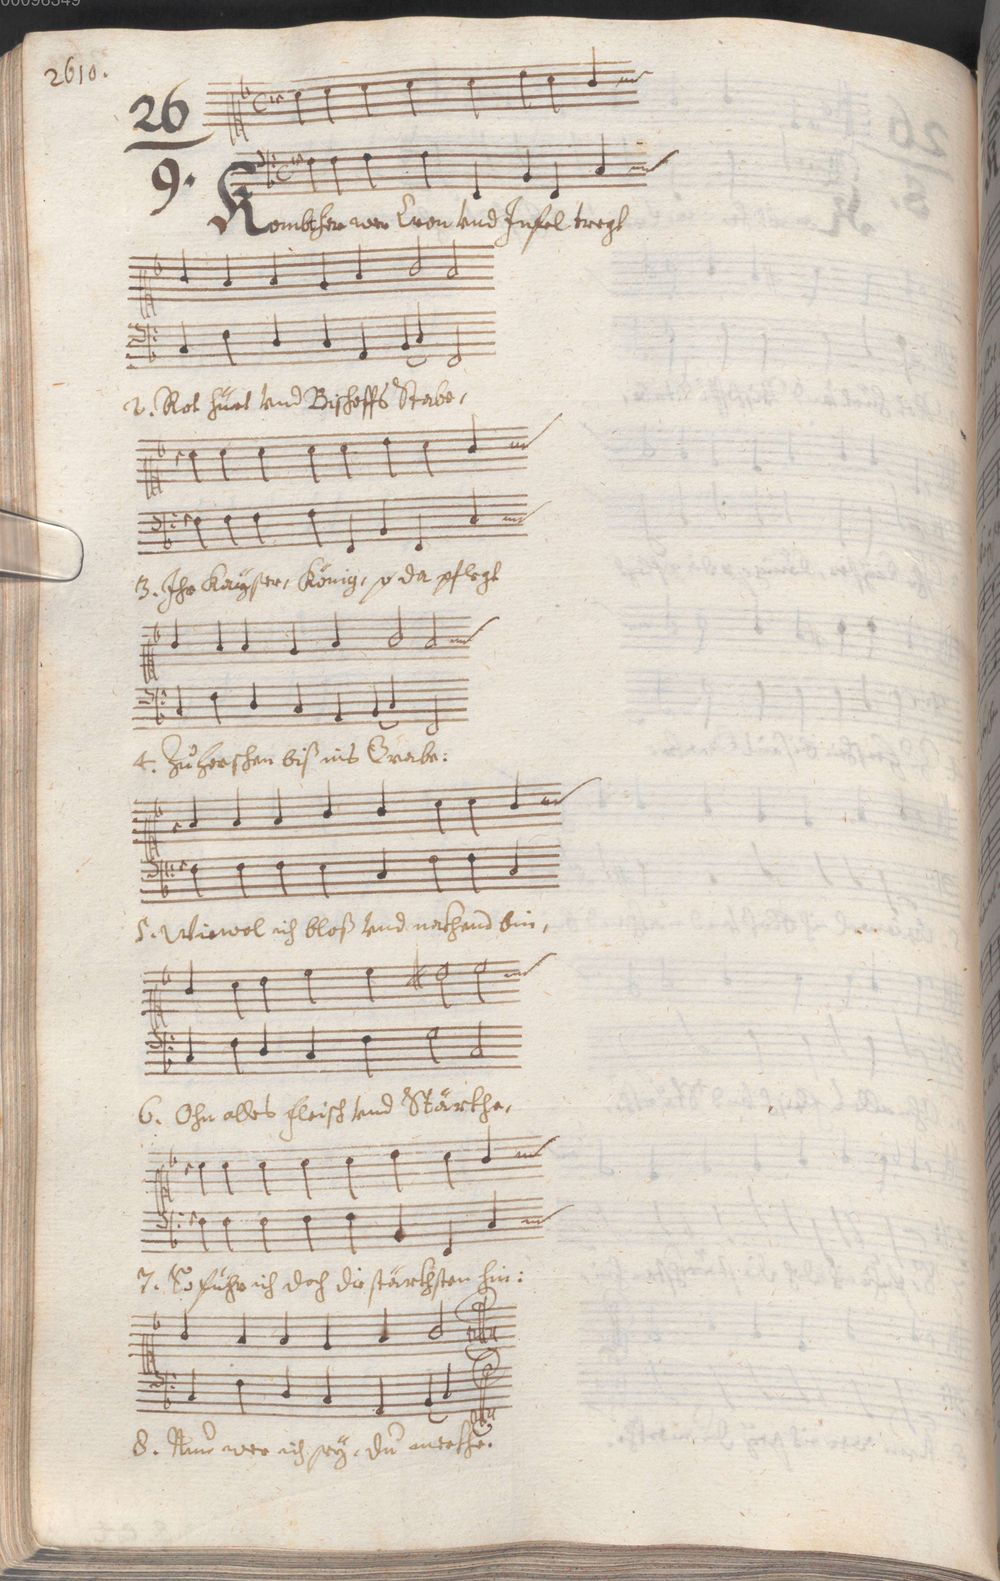 00098349
2610.
26
9.
Kombt her wer Cron vnd Infel tregt
2. Rot hüet vnd Bischoffs Stabe,
3. Ihr Kaÿser, König, so da pflegt
4. Zu herschen biß ins Grabe:
5. Wiewol ich bloß vnd nackhend bin,
6. Ohn alles fleisch vnd Stärckhe,
7. So führ ich doch die stärckhsten hin:
8. Nun wer ich seÿ, du merckhe.